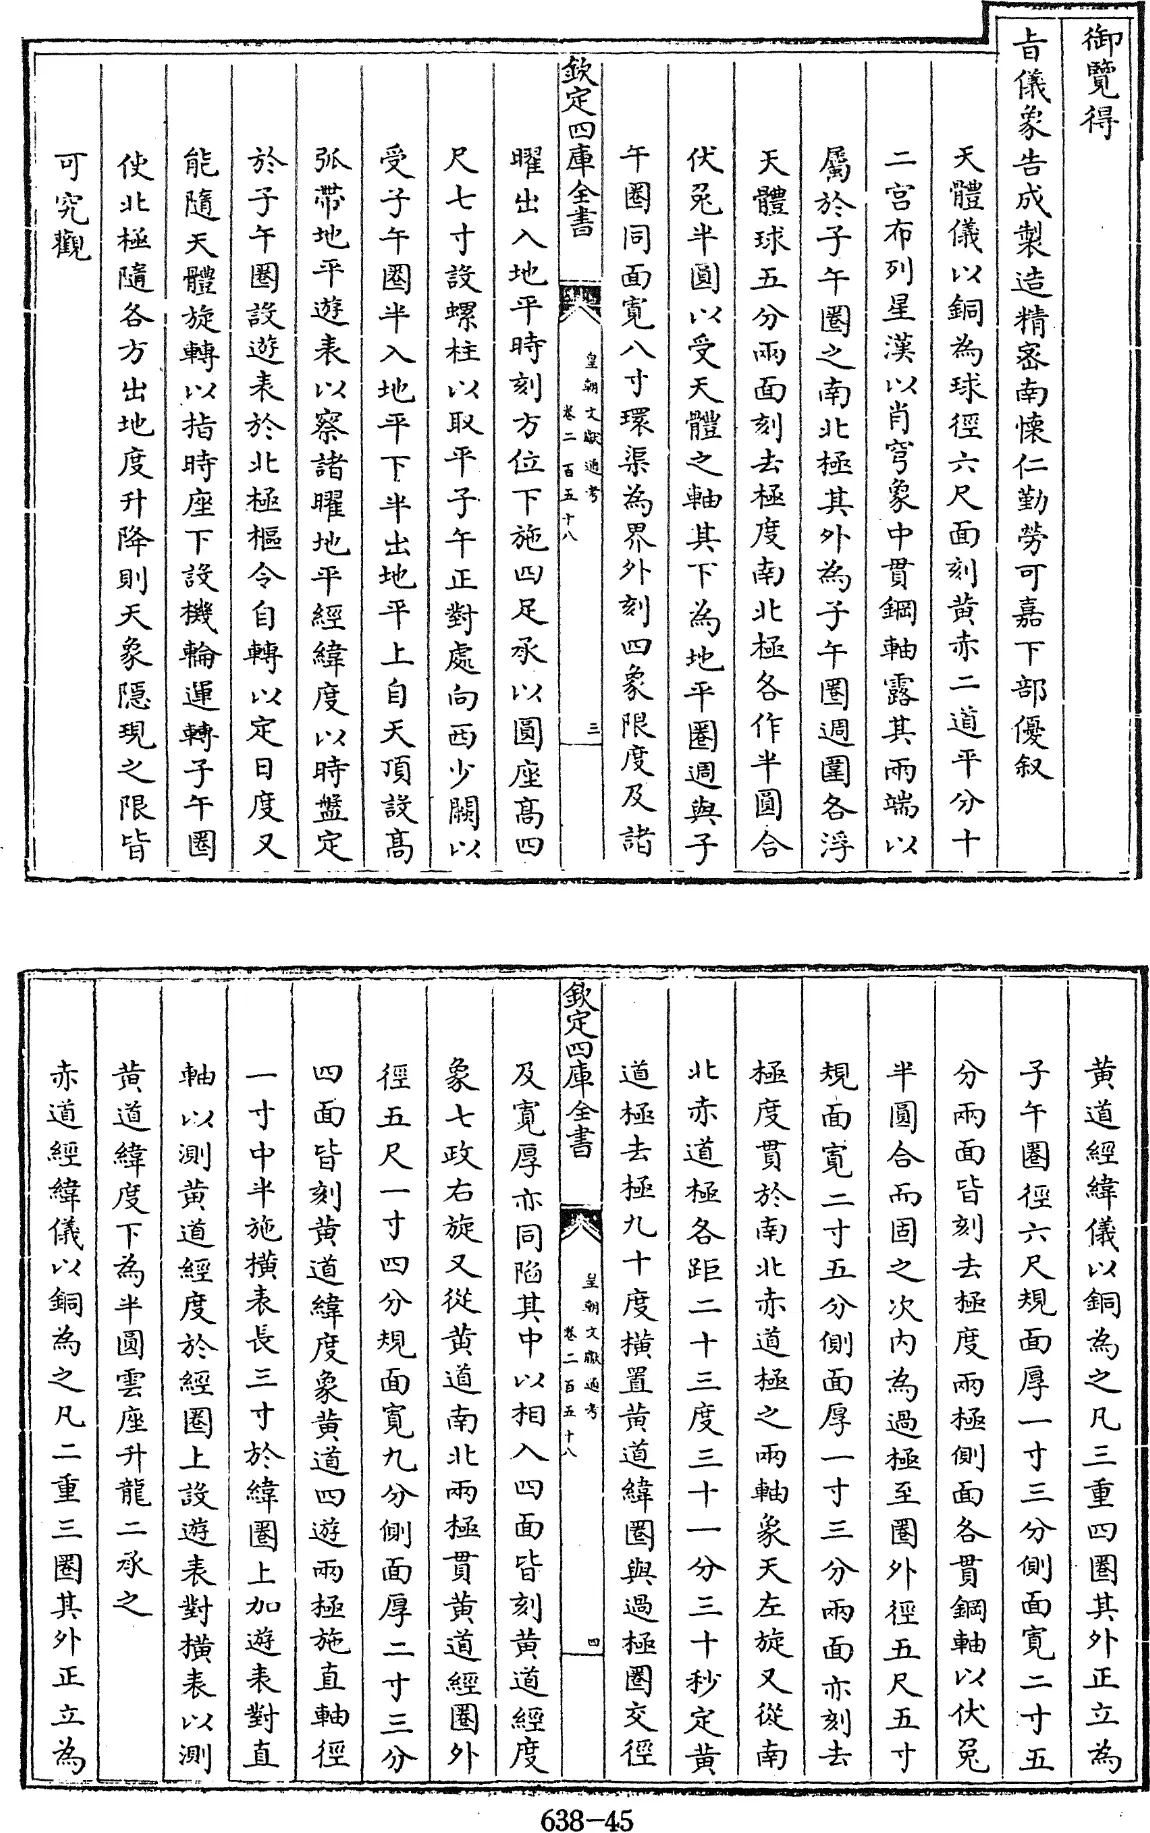 御覽得
旨儀象告成製造精密南懷仁勤勞可嘉下部優叙
天體儀以銅為球徑六尺面刻黄赤二道平分十
二宫布列星漢以肖穹象中貫鋼軸露其兩端以
屬於子午圈之南北極其外為子午圈週圍各浮
天體球五分兩面刻去極度南北極各作半圓合
伏兎半圓以受天體之軸其下為地平圈週與子
午圈同面寛八寸環渠為界外刻四象限度及諸
欽定四庫全書
皇朝文獻通考
卷二百五十八
三
曜出入地平時刻方位下施四足承以圓座髙四
尺七寸設螺柱以取平子午正對處向西少闕以
受子午圈半入地平下半出地平上自天頂設髙
弧帶地平遊表以察諸曜地平經緯度以時盤定
於子午圈設遊表於北極樞令自轉以定日度又
能隨天體旋轉以指時座下設機輪運轉子午圈
使北極隨各方出地度升降則天象隱現之限皆
可究觀
黄道經緯儀以銅為之凡三重四圈其外正立為
子午圈徑六尺規面厚一寸三分側面寛二寸五
分兩面皆刻去極度兩極側面各貫鋼軸以伏兎
半圓合而固之次内為過極至圈外徑五尺五寸
規面寛二寸五分側面厚一寸三分兩面亦刻去
極度貫於南北赤道極之兩軸象天左旋又從南
北赤道極各距二十三度三十一分三十秒定黄
道極去極九十度横置黄道緯圈與過極圈交徑
欽定四庫全書
皇朝文獻通考
卷二百五十八
四
及寛厚亦同陷其中以相入四面皆刻黄道經度
象七政右旋又從黄道南北兩極貫黄道經圈外
徑五尺一寸四分規面寛九分側面厚二寸三分
四面皆刻黄道緯度象黄道四遊兩極施直軸徑
一寸中半施横表長三寸於緯圈上加遊表對直
軸以測黄道經度於經圈上設遊表對横表以測
黄道緯度下為半圓雲座升龍二承之
赤道經緯儀以銅為之凡二重三圈其外正立為
638-45